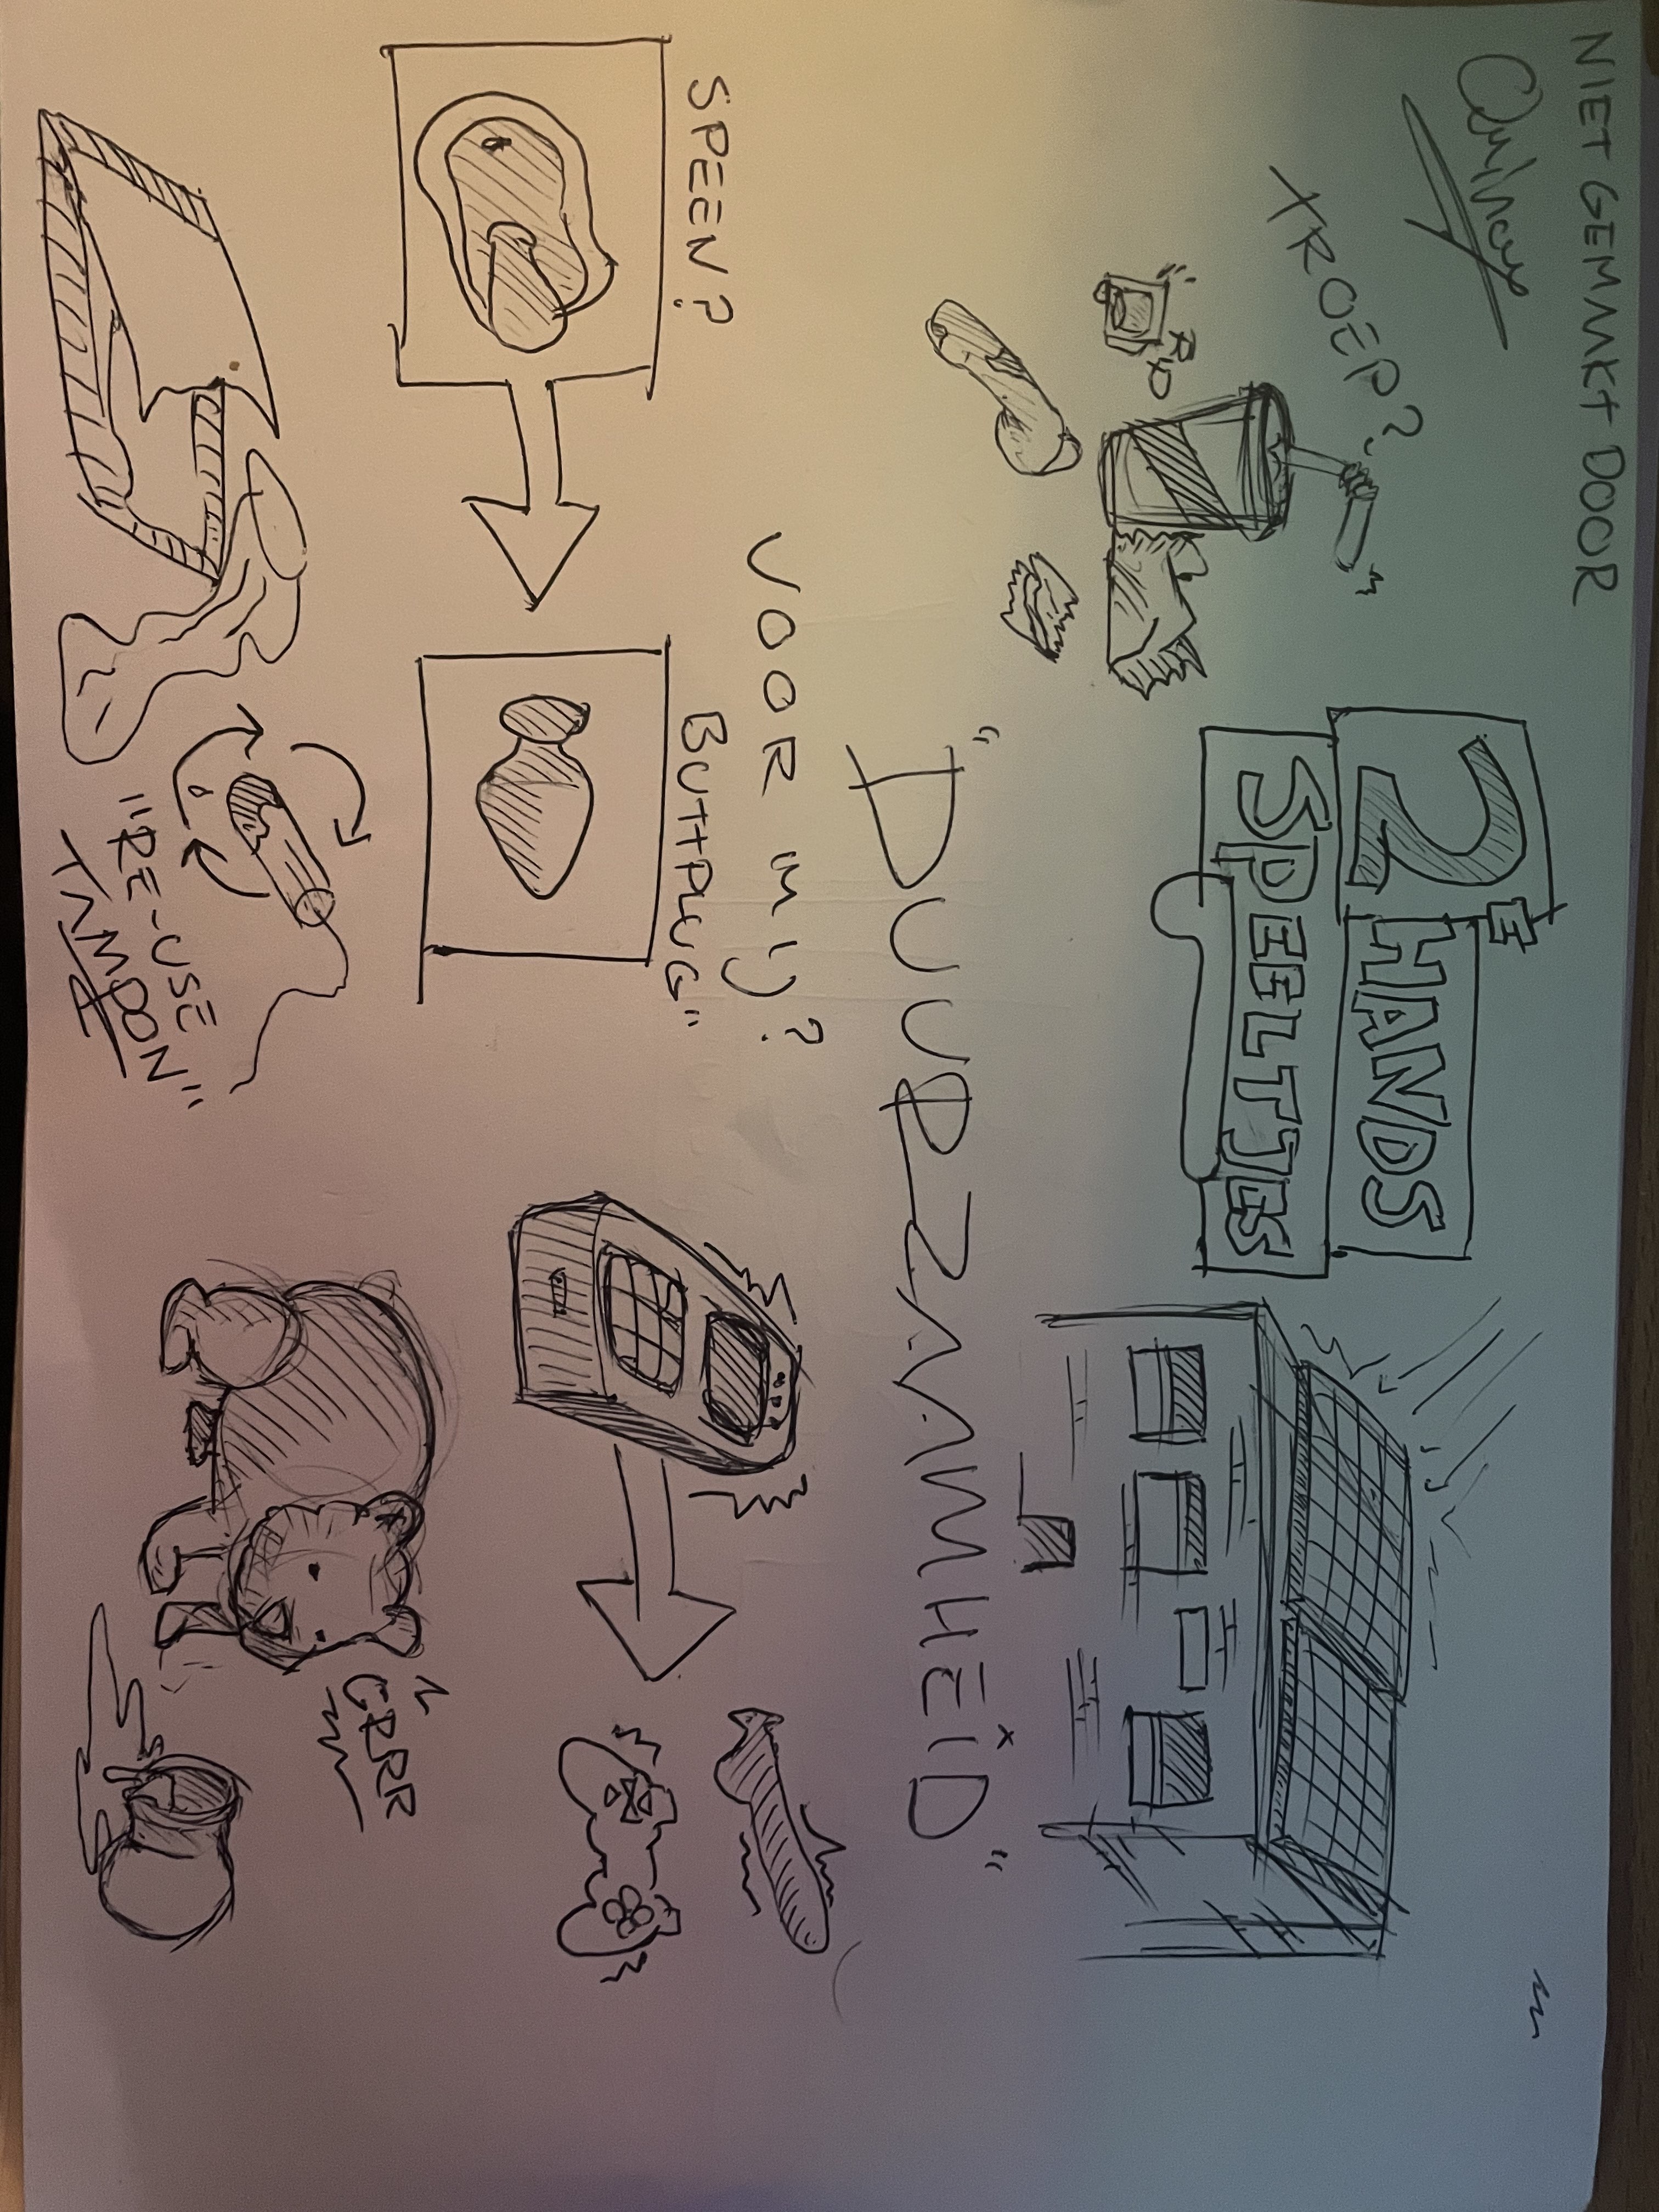 NIET GEMAAKT DOOR
TROEP?
2E HANDS
SPEELTJES
"DUURZAAMHEID"
VOOR MIJ?
SPEEN?
BUTTPLUG"
"GRRR
"RE-USE
TAMPON"